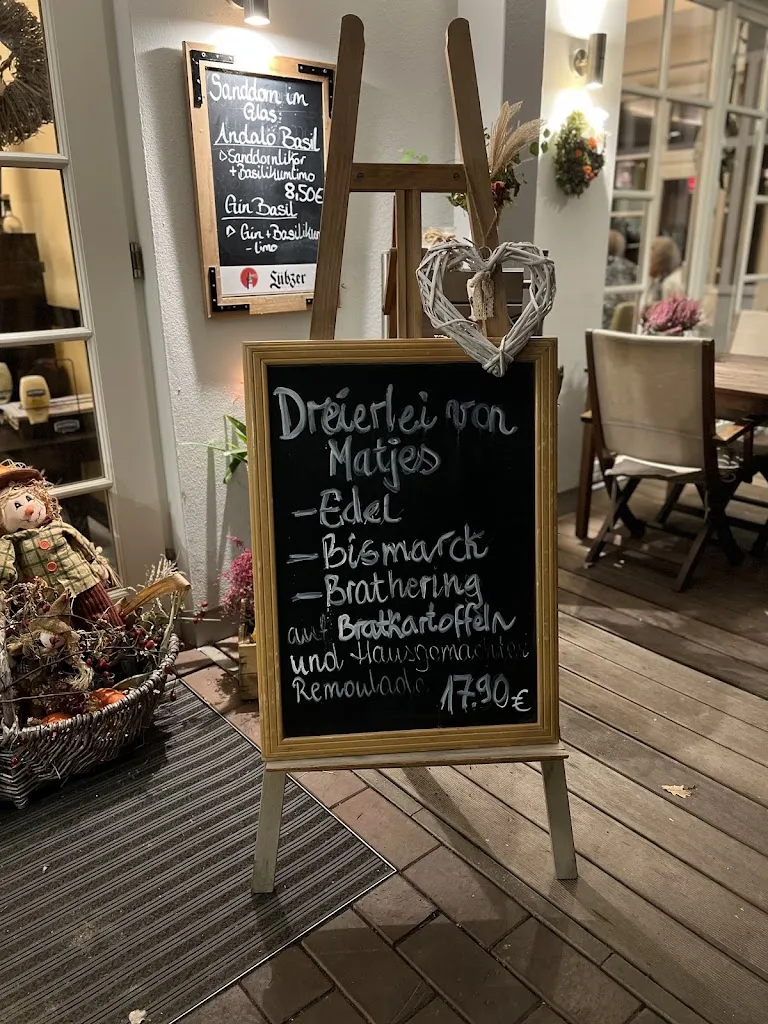 Sanddorn im
Glas:
Andalö Basil
Sanddornlikör
+ Basilikumlimo
8,50€
Gin Basil
Gin + Basilikum
-limo
Lübzer
Dreierlei von
Matjes
- Edel
- Bismarck
- Brathering
auf Bratkartoffeln
und Hausgemachter
Remoulade 17.90€